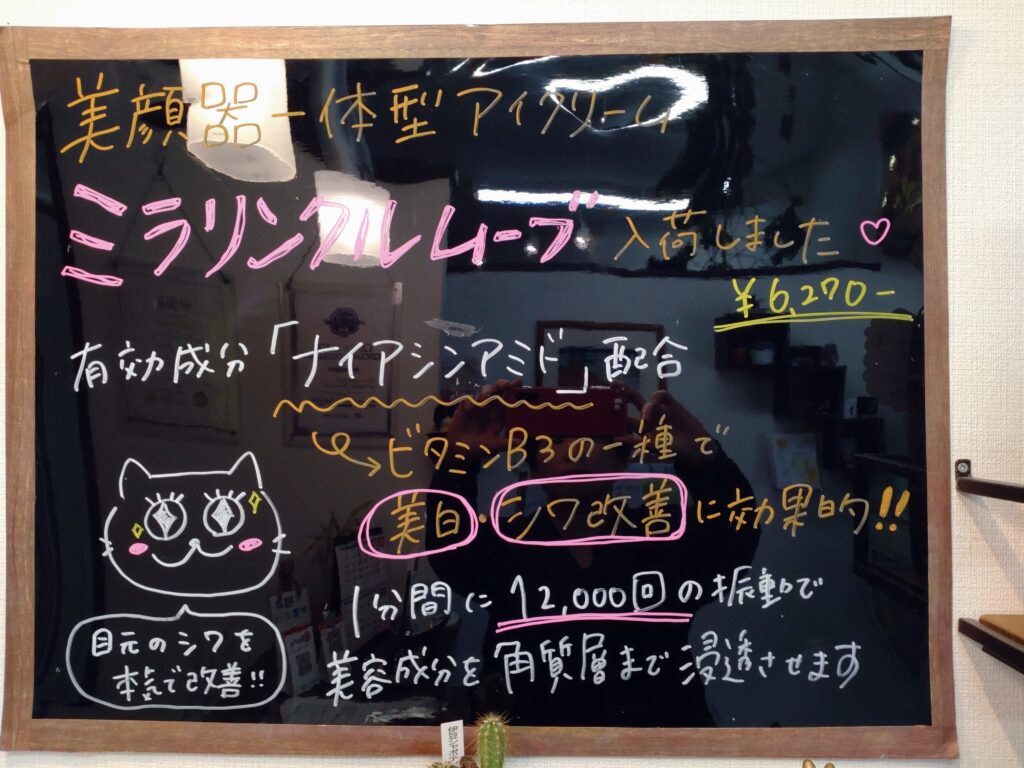 美顔器一体型アイクリーム
ミラリンクルムーブ 入荷しました♡
¥6,270-
有効成分「ナイアシンアミド」配合
ビタミンB3の一種で
美白・シワ改善に効果的!!
1分間に12,000回の振動で
美容成分を角質層まで浸透させます
目元のシワを
本気で改善!!